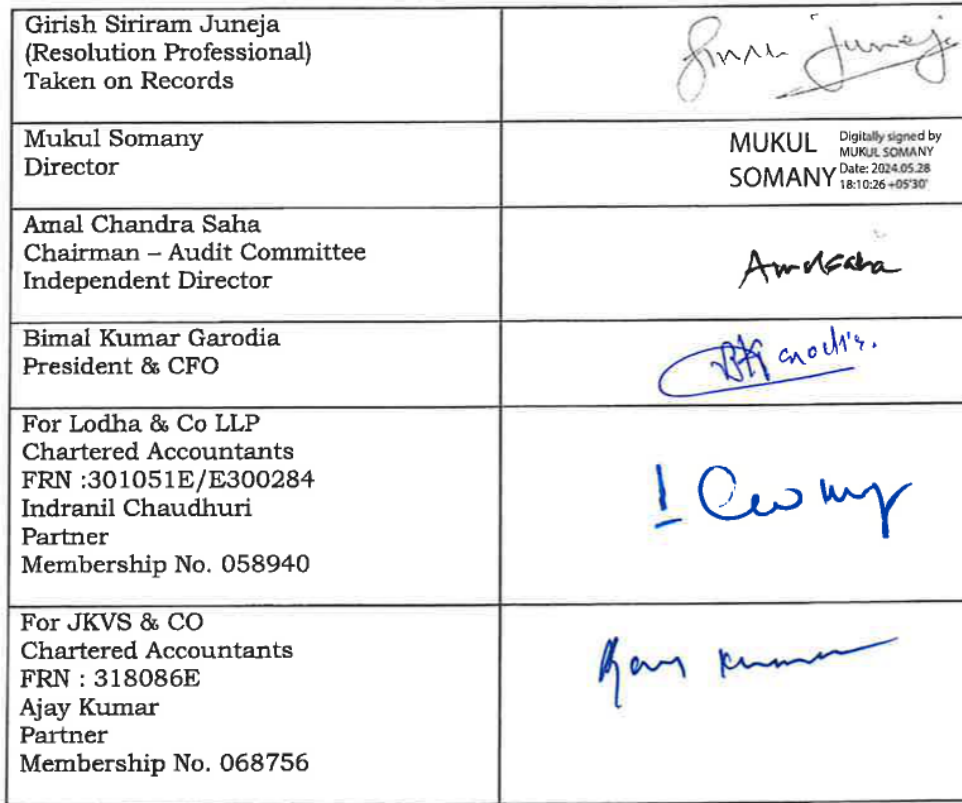 Girish Siriram Juneja
(Resolution Professional)
Taken on Records
Juneja
Mukul Somany
Director
MUKUL
SOMANY
Digitally signed by
MUKUL SOMANY
Date: 2024.05.28
18:10:26 +05'30'
Amal Chandra Saha
Chairman – Audit Committee
Independent Director
Bimal Kumar Garodia
President & CFO
For Lodha & Co LLP
Chartered Accountants
FRN :301051E/E300284
Indranil Chaudhuri
Partner
Membership No. 058940
For JKVS & CO
Chartered Accountants
FRN : 318086E
Ajay Kumar
Partner
Membership No. 068756